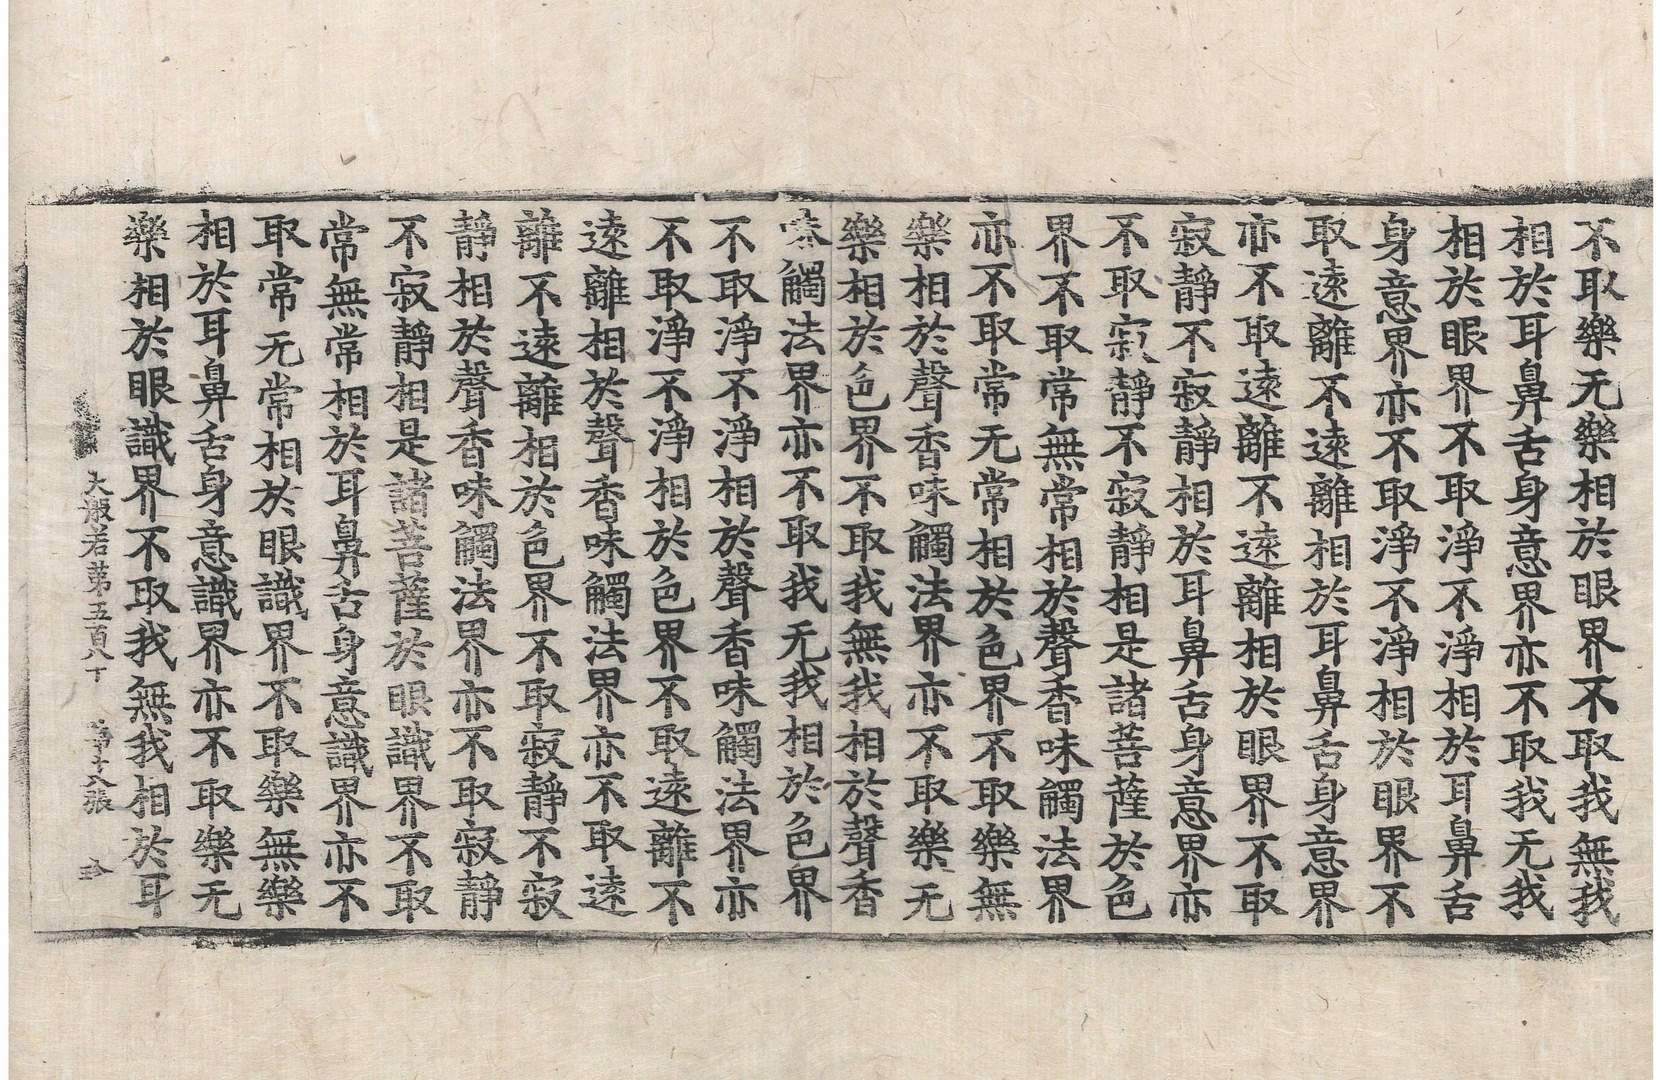 不取樂无樂相於眼界不取我無我
相於耳鼻舌身意界亦不取我无我
相於眼界不取淨不淨相於耳鼻舌
身意界亦不取淨不淨相於眼界不
取遠離不遠離相於耳鼻舌身意界
亦不取遠離不遠離相於眼界不取
寂靜不寂靜相於耳鼻舌身意界亦
不取寂靜不寂靜相是諸菩薩於色
界不取常無常相於聲香味觸法界
亦不取常无常相於色界不取樂無
樂相於聲香味觸法界亦不取樂无
樂相於色界不取我無我相於聲香
味觸法界亦不取我无我相於色界
不取淨不淨相於聲香味觸法界亦
不取淨不淨相於色界不取遠離不
遠離相於聲香味觸法界亦不取遠
離不遠離相於色界不取寂靜不寂
靜相於聲香味觸法界亦不取寂靜
不寂靜相是諸菩薩於眼識界不取
常無常相於耳鼻舌身意識界亦不
取常无常相於眼識界不取樂無樂
相於耳鼻舌身意識界亦不取樂无
樂相於眼識界不取我無我相於耳
大般若第五百八 第十八張